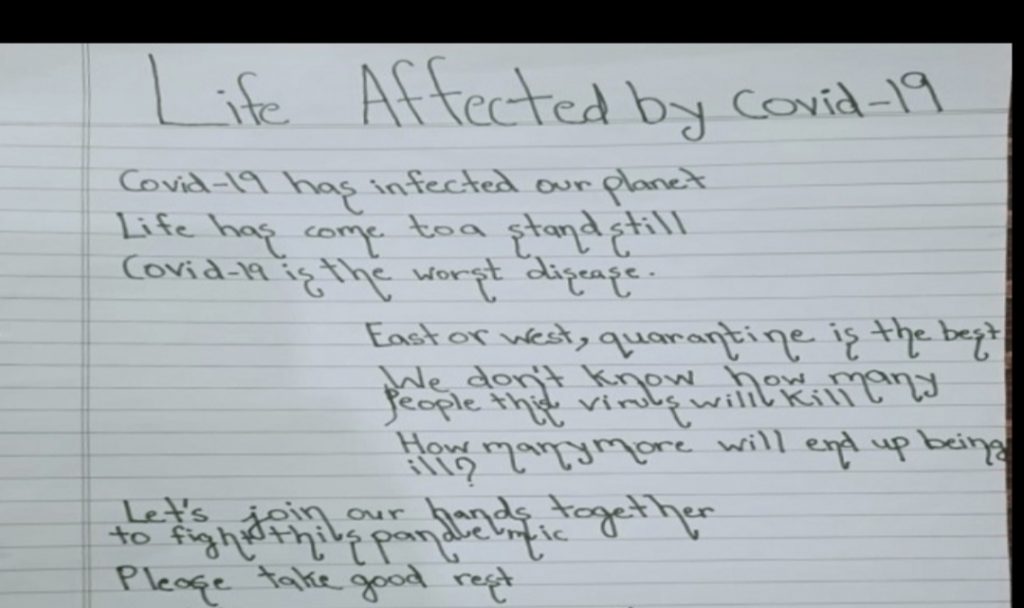 Life Affected by Covid-19
Covid-19 has infected our planet
Life has come to a stand still
Covid-19 is the worst disease.
East or west, quarantine is the best
We don't know how many
people this virus will kill
How many more will end up being
ill?
Let's join our hands together
to fight this pandemic
Please take good rest